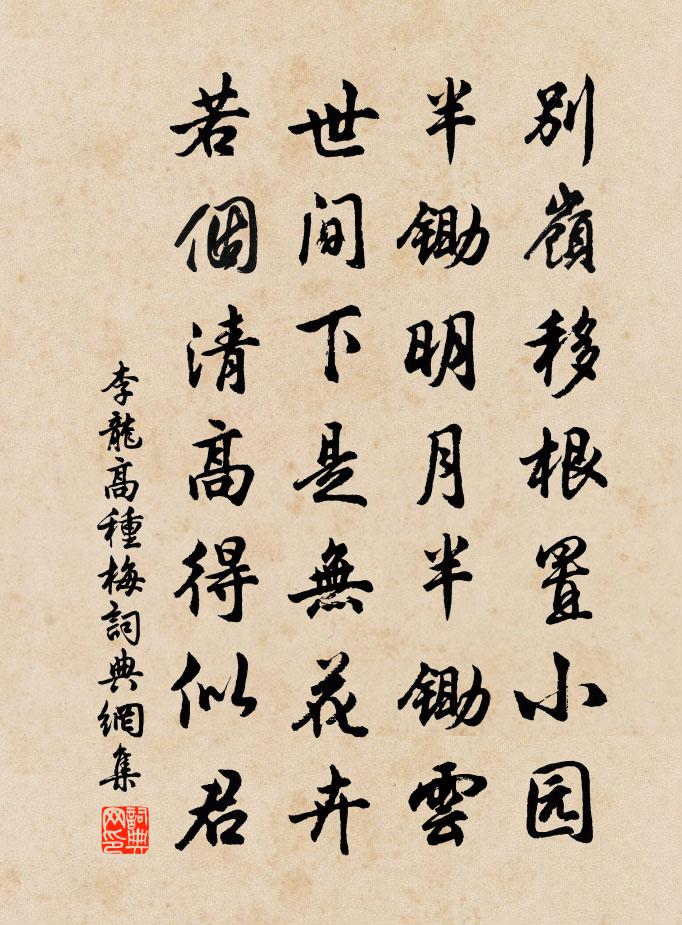 别嶺移根置小园
半鋤明月半鋤雲
世间下是無花卉
若個清高得似君
李龍高種梅詞典網集
詞典网印